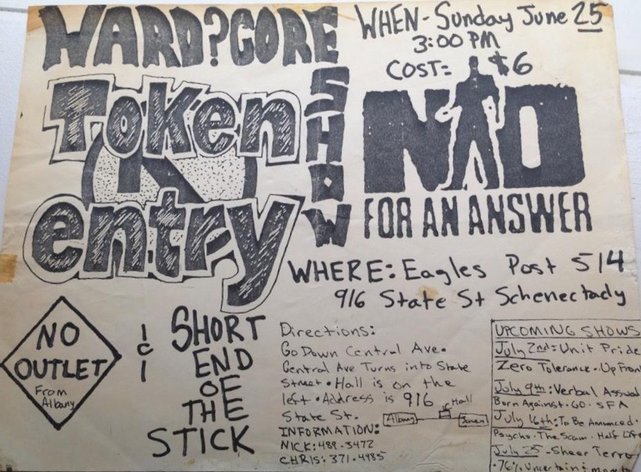 WARD?CORE
SHOW
Token
entry
WHEN- Sunday June 25
3:00 PM
COST= $6
NO
FOR AN ANSWER
WHERE: Eagles Post 514
916 State St Schenectady
NO
OUTLET
From
Albany
SHORT
END
OF
THE
STICK
Directions:
Go Down Central Ave.
Central Ave Turns into State
Street • Hall is on the
left • Address is 916
State St.
Hall
Albany
INFORMATION:
NICK: 489-3472
CHRIS: 371-4985
UPCOMING SHOWS
July 2nd: Unit Pride
Zero Tolerance • Up Fron
July 9th: Verbal Assau
Born Against • GO • SFA
July 16th: To Be Announced •
Psycho • The Scam • Half Li
July 25 - Sheer Terro